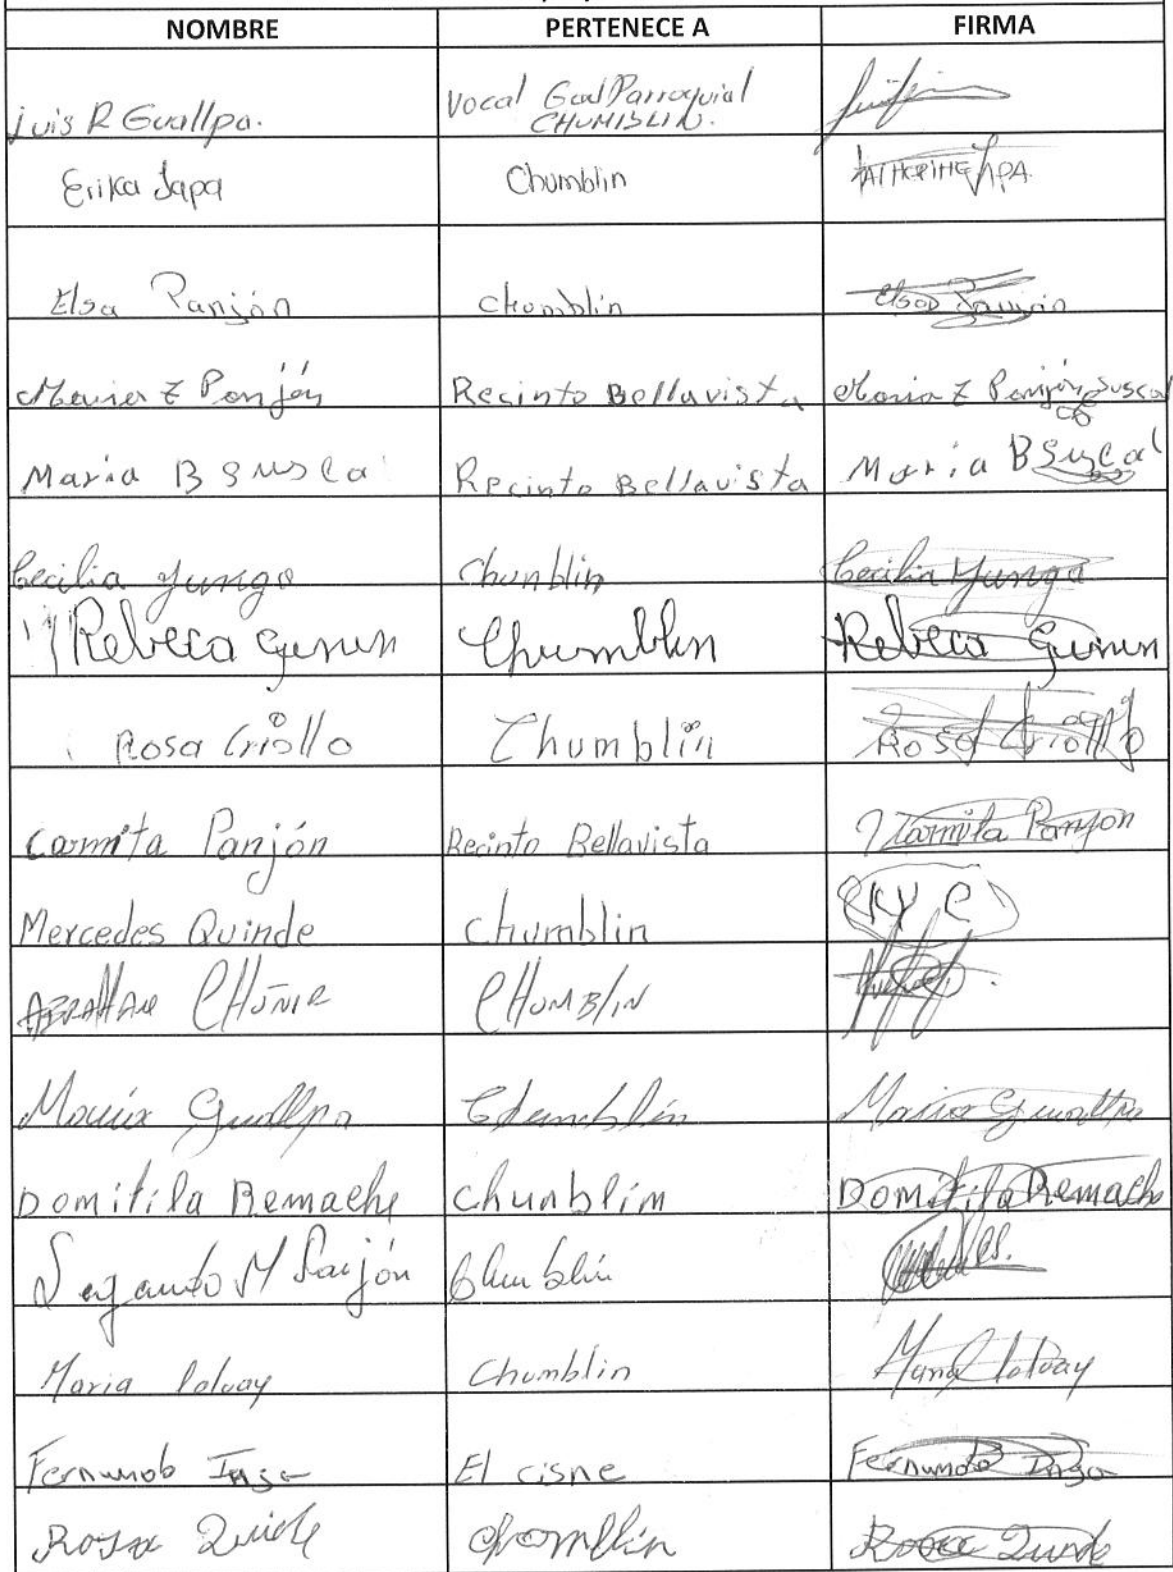 NOMBRE PERTENECE A FIRMA
Luis R Guallpa. Vocal Gad Parroquial
CHUMBLIN.
Erika Japa Chumblin KATHERINE JAPA.
Elsa Panjón chumblin Elsa Panjón
Maria Z Panjón Recinto Bellavista Maria Z Panjón Suscal
Maria B Suscal Recinto Bellavista Maria B Suscal
Cecilia Yunga Chunblin Cecilia Yunga
Rebeca Chumblin Rebeca
Rosa Criollo Chumblin Rosa Criollo
Carmita Panjón Recinto Bellavista Carmita Panjon
Mercedes Quinde chumblin
ABRAHAM CHUMBLIN
Maria Guallpa Chumblin Maria Guallpa
Domitila Remache chunblim Domitila Remache
Segundo M Panjón Chumblin
Maria Chumblin Maria
Fernundo Inga El cisne Fernundo Inga
Rosa Quinde chomblin Rosa Quinde